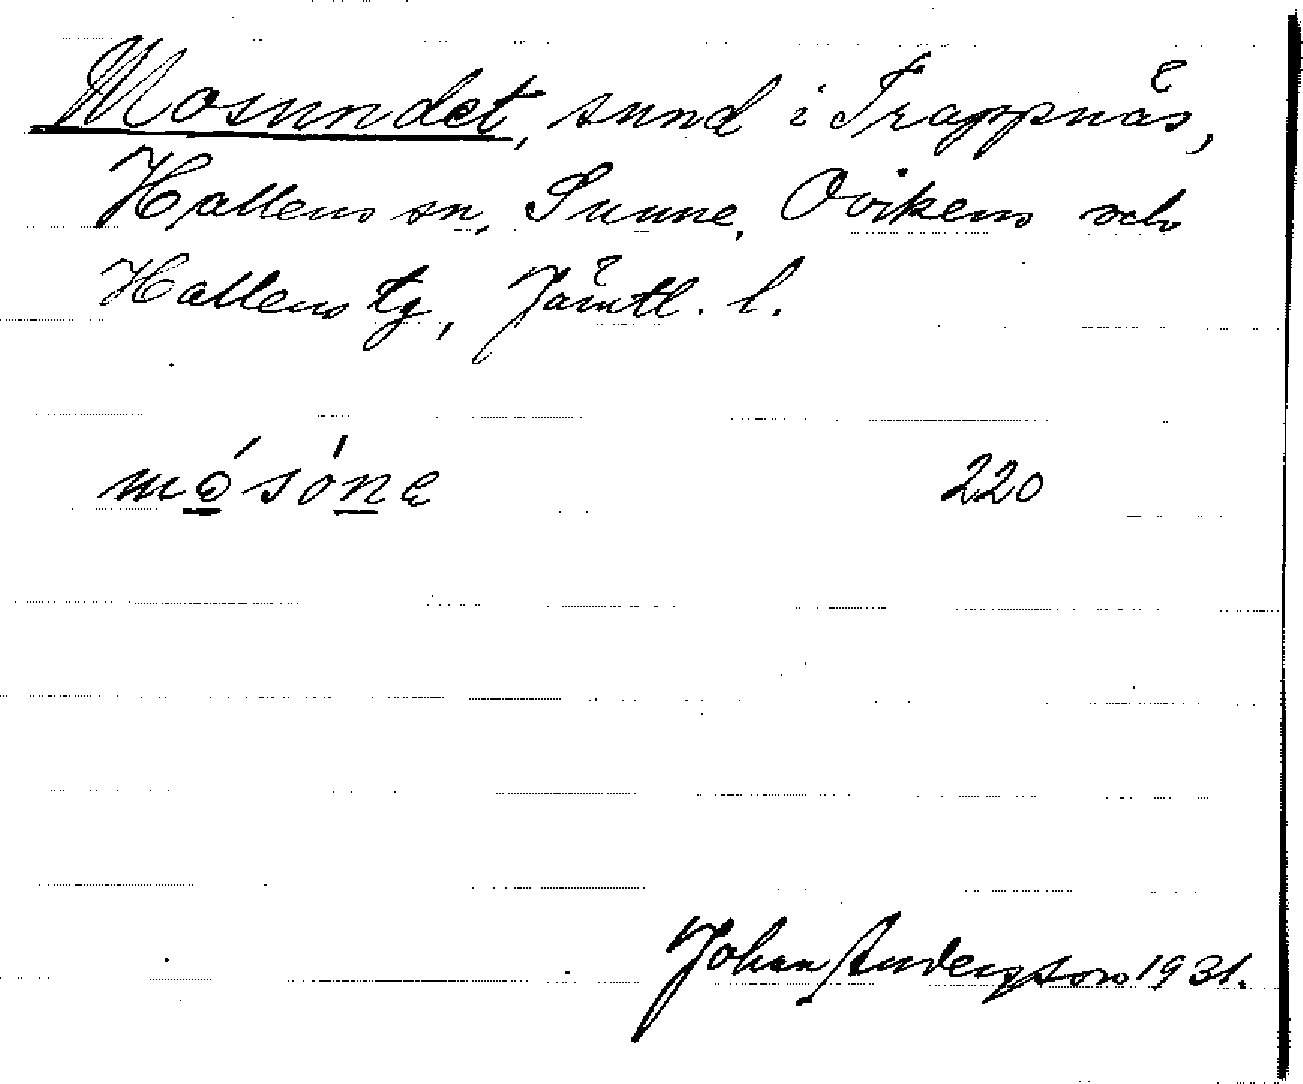 Mosundet, sund i Trappnäs,
Hallens sn, Sunne, Ovikens och
Hallens tg, Jämtl. l.
mó̲són̲e 220
Johan Andersson 1931.